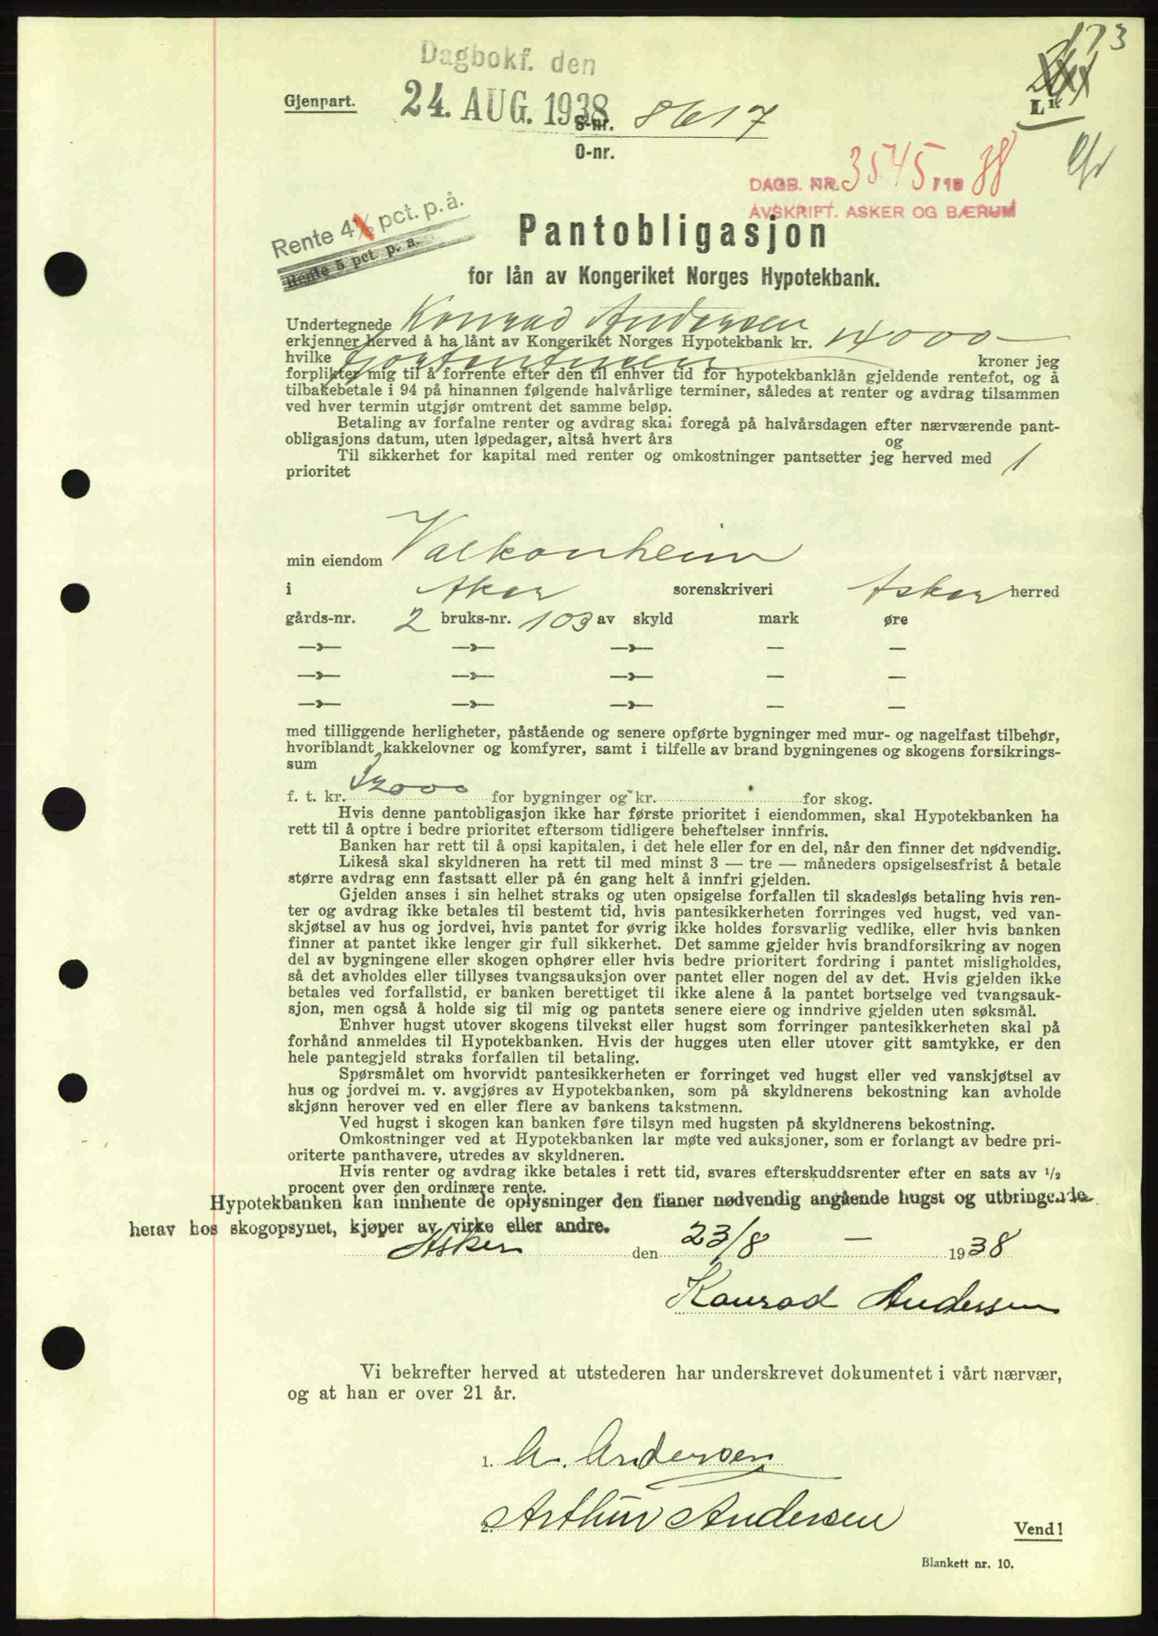 173
Dagbokf. den
Gjenpart.
24. AUG. 1938
S-nr. 8617
L.
O-nr.
DAGB. NR. 3545/19 38
AVSKRIFT. ASKER OG BÆRUM
Rente 4½ pct. p.å.
Rente 5 pct. p. a.
Pantobligasjon
for lån av Kongeriket Norges Hypotekbank.
Undertegnede Konrad Andersen
erkjenner herved å ha lånt av Kongeriket Norges Hypotekbank kr. 14000 —
hvilke fjortentusen kroner jeg
forplikter mig til å forrente efter den til enhver tid for hypotekbanklån gjeldende rentefot, og å
tilbakebetale i 94 på hinannen følgende halvårlige terminer, således at renter og avdrag tilsammen
ved hver termin utgjør omtrent det samme beløp.
Betaling av forfalne renter og avdrag skal foregå på halvårsdagen efter nærværende pant-
obligasjons datum, uten løpedager, altså hvert års og
Til sikkerhet for kapital med renter og omkostninger pantsetter jeg herved med 1
prioritet
min eiendom Valkonheim
i Aker sorenskriveri Asker herred
gårds-nr. 2 bruks-nr. 103 av skyld mark øre
—»— —»— —»— — —
—»— —»— —»— — —
—»— —»— —»— — —
med tilliggende herligheter, påstående og senere opførte bygninger med mur- og nagelfast tilbehør,
hvoriblandt kakkelovner og komfyrer, samt i tilfelle av brand bygningenes og skogens forsikrings-
sum
f. t. kr. 32000 for bygninger og kr. for skog.
Hvis denne pantobligasjon ikke har første prioritet i eiendommen, skal Hypotekbanken ha
rett til å optre i bedre prioritet eftersom tidligere beheftelser innfris.
Banken har rett til å opsi kapitalen, i det hele eller for en del, når den finner det nødvendig.
Likeså skal skyldneren ha rett til med minst 3 — tre — måneders opsigelsesfrist å betale
større avdrag enn fastsatt eller på én gang helt å innfri gjelden.
Gjelden anses i sin helhet straks og uten opsigelse forfallen til skadesløs betaling hvis ren-
ter og avdrag ikke betales til bestemt tid, hvis pantesikkerheten forringes ved hugst, ved van-
skjøtsel av hus og jordvei, hvis pantet for øvrig ikke holdes forsvarlig vedlike, eller hvis banken
finner at pantet ikke lenger gir full sikkerhet. Det samme gjelder hvis brandforsikring av nogen
del av bygningene eller skogen ophører eller hvis bedre prioritert fordring i pantet misligholdes,
så det avholdes eller tillyses tvangsauksjon over pantet eller nogen del av det. Hvis gjelden ikke
betales ved forfallstid, er banken berettiget til ikke alene å la pantet bortselge ved tvangsauk-
sjon, men også å holde sig til mig og pantets senere eiere og inndrive gjelden uten søksmål.
Enhver hugst utover skogens tilvekst eller hugst som forringer pantesikkerheten skal på
forhånd anmeldes til Hypotekbanken. Hvis der hugges uten eller utover gitt samtykke, er den
hele pantegjeld straks forfallen til betaling.
Spørsmålet om hvorvidt pantesikkerheten er forringet ved hugst eller ved vanskjøtsel av
hus og jordvei m. v. avgjøres av Hypotekbanken, som på skyldnerens bekostning kan avholde
skjønn herover ved en eller flere av bankens takstmenn.
Ved hugst i skogen kan banken føre tilsyn med hugsten på skyldnerens bekostning.
Omkostninger ved at Hypotekbanken lar møte ved auksjoner, som er forlangt av bedre pri-
oriterte panthavere, utredes av skyldneren.
Hvis renter og avdrag ikke betales i rett tid, svares efterskuddsrenter efter en sats av 1/2
procent over den ordinære rente.
Hypotekbanken kan innhente de oplysninger den finner nødvendig angående hugst og utbringende
herav hos skogopsynet, kjøper av virke eller andre.
Asker den 23/8 — 1938
Konrad Andersen
Vi bekrefter herved at utstederen har underskrevet dokumentet i vårt nærvær,
og at han er over 21 år.
1. A. Andersen
2. Arthur Andersen
Vend!
Blankett nr. 10.